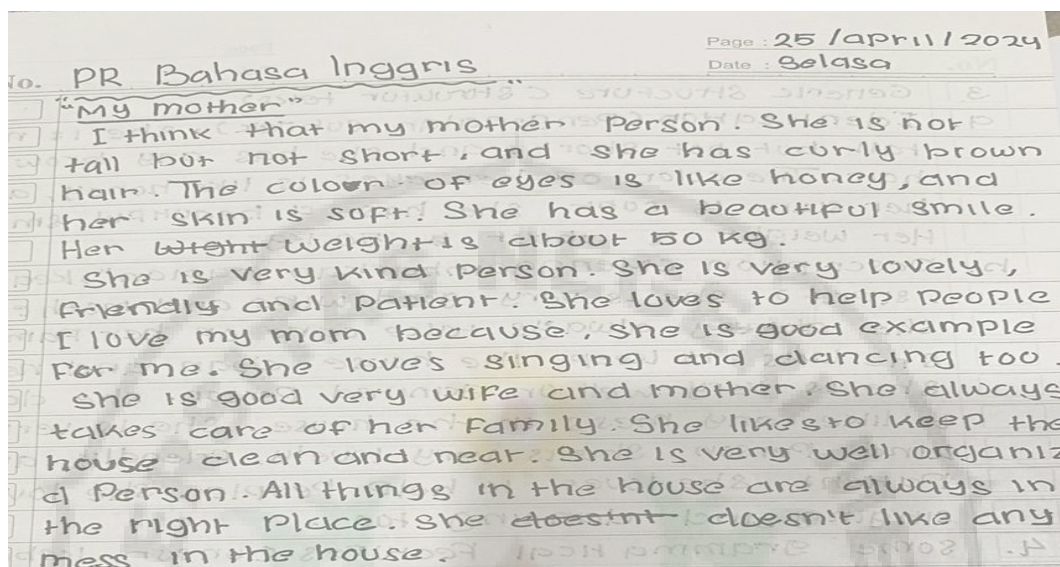 Page : 25 /April / 2024
No. PR Bahasa Inggris
Date : Selasa
"My mother"
I think that my mother person. She is not
tall but not short, and she has curly brown
hair. The colour of eyes is like honey, and
her skin is soft. She has a beautiful smile.
Her wight weight is about 50 kg.
She is very kind person. She is very lovely,
friendly and patient. She loves to help people
I love my mom because, she is good example
for me. She loves singing and dancing too
she is good very wife and mother. She always
takes care of her family. She likes to keep the
house clean and near. She is very well organiz
d Person. All things in the house are always in
the right place she doesint doesn't like any
mess in the house.